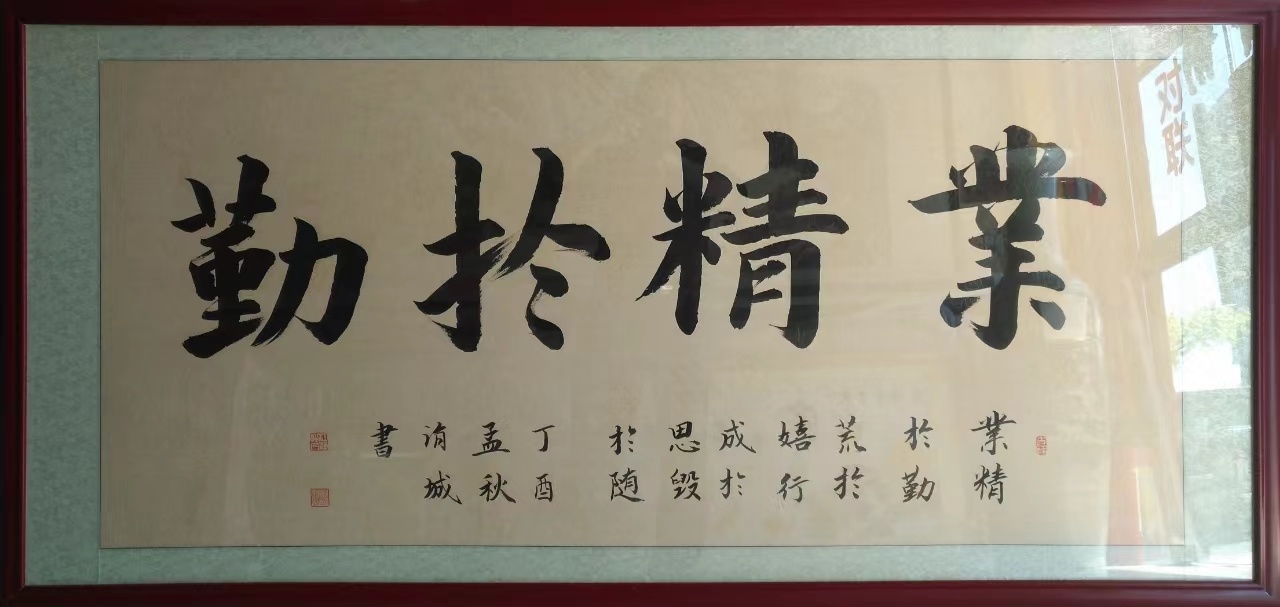 業精於勤
業精
於勤
荒於
嬉行
成於
思毀
於随
丁酉
孟秋
洧城
書